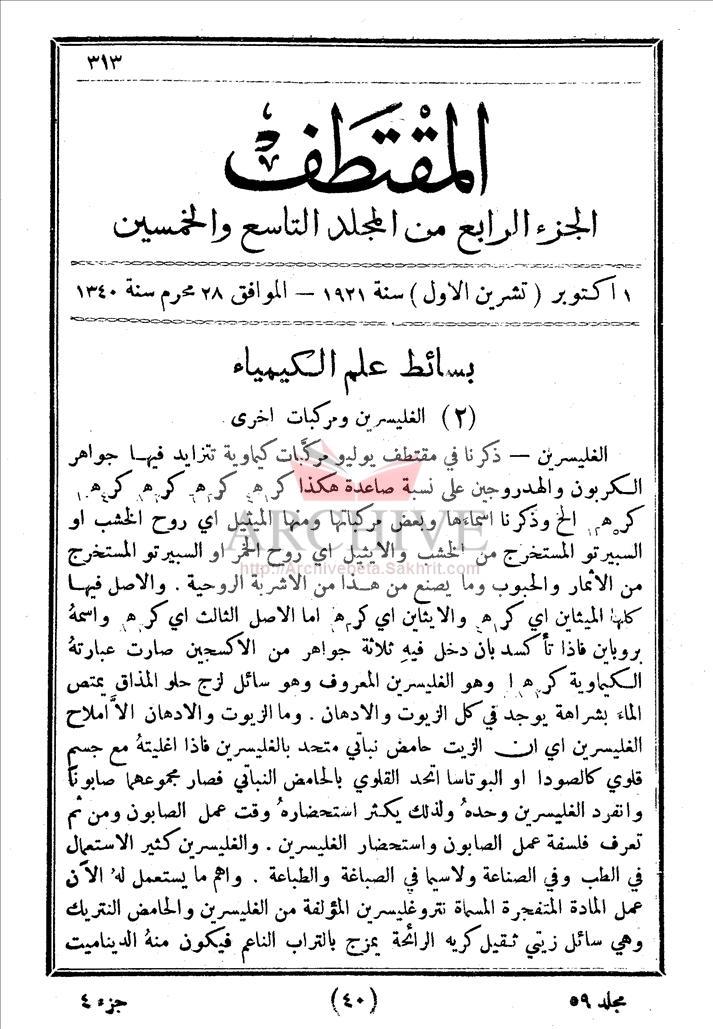 ٣١٣
المقتطف
الجزء الرابع من المجلد التاسع والخمسين
١ اكتوبر ( تشرين الاول ) سنة ١٩٢١ — الموافق ٢٨ محرم سنة ١٣٤٠
بسائط علم الكيمياء
(٢) الغليسرين ومركبات اخرى
الغليسرين — ذكرنا في مقتطف يوليو مركَّبات كيماوية تتزايد فيها جواهر
الكربون والهدروجين على نسبة صاعدة هكذا كر ه كر ه كر ه كر ه
كر ه الخ وذكرنا اسماءَها وبعض مركباتها ومنها الميثيل اي روح الخشب او
السبيرتو المستخرج من الخشب والايثيل اي روح الخمر او السبيرتو المستخرج
من الاثمار والحبوب وما يصنع من هذا من الاشربة الروحية . والاصل فيها
كلها الميثاين اي كر ه والايثاين اي كر ه اما الاصل الثالث اي كر ه واسمهُ
بروباين فاذا تأكسد بان دخل فيهِ ثلاثة جواهر من الاكسجين صارت عبارتهُ
الكيماوية كر ه ا وهو الغليسرين المعروف وهو سائل لزج حلو المذاق يمتص
الماءَ بشراهة يوجد في كل الزيوت والادهان . وما الزيوت والادهان الاَّ املاح
الغليسرين اي ان الزيت حامض نباتي متحد بالغليسرين فاذا اغليتهُ مع جسم
قلوي كالصودا او البوتاسا اتحد القلوي بالحامض النباتي فصار مجموعهما صابونًا
وانفرد الغليسرين وحدهُ ولذلك يكثر استحضارهُ وقت عمل الصابون ومن ثم
تعرف فلسفة عمل الصابون واستحضار الغليسرين . والغليسرين كثير الاستعمال
في الطب وفي الصناعة ولاسيما في الصباغة والطباعة . واهم ما يستعمل لهُ الآن
عمل المادة المتفجرة المسماة نتروغليسرين المؤلفة من الغليسرين والحامض النتريك
وهي سائل زيتي ثقيل كريه الرائحة يمزج بالتراب الناعم فيكون منهُ الديناميت
مجلد ٥٩
(٤٠)
جزء ٤
ARCHIVE
http://Archivebeta.Sakhrit.com